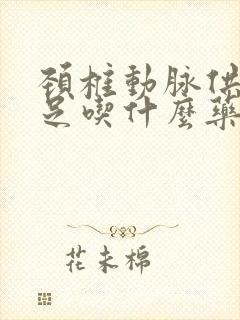 頸椎動脉供
足喫什麼藥
花未棉